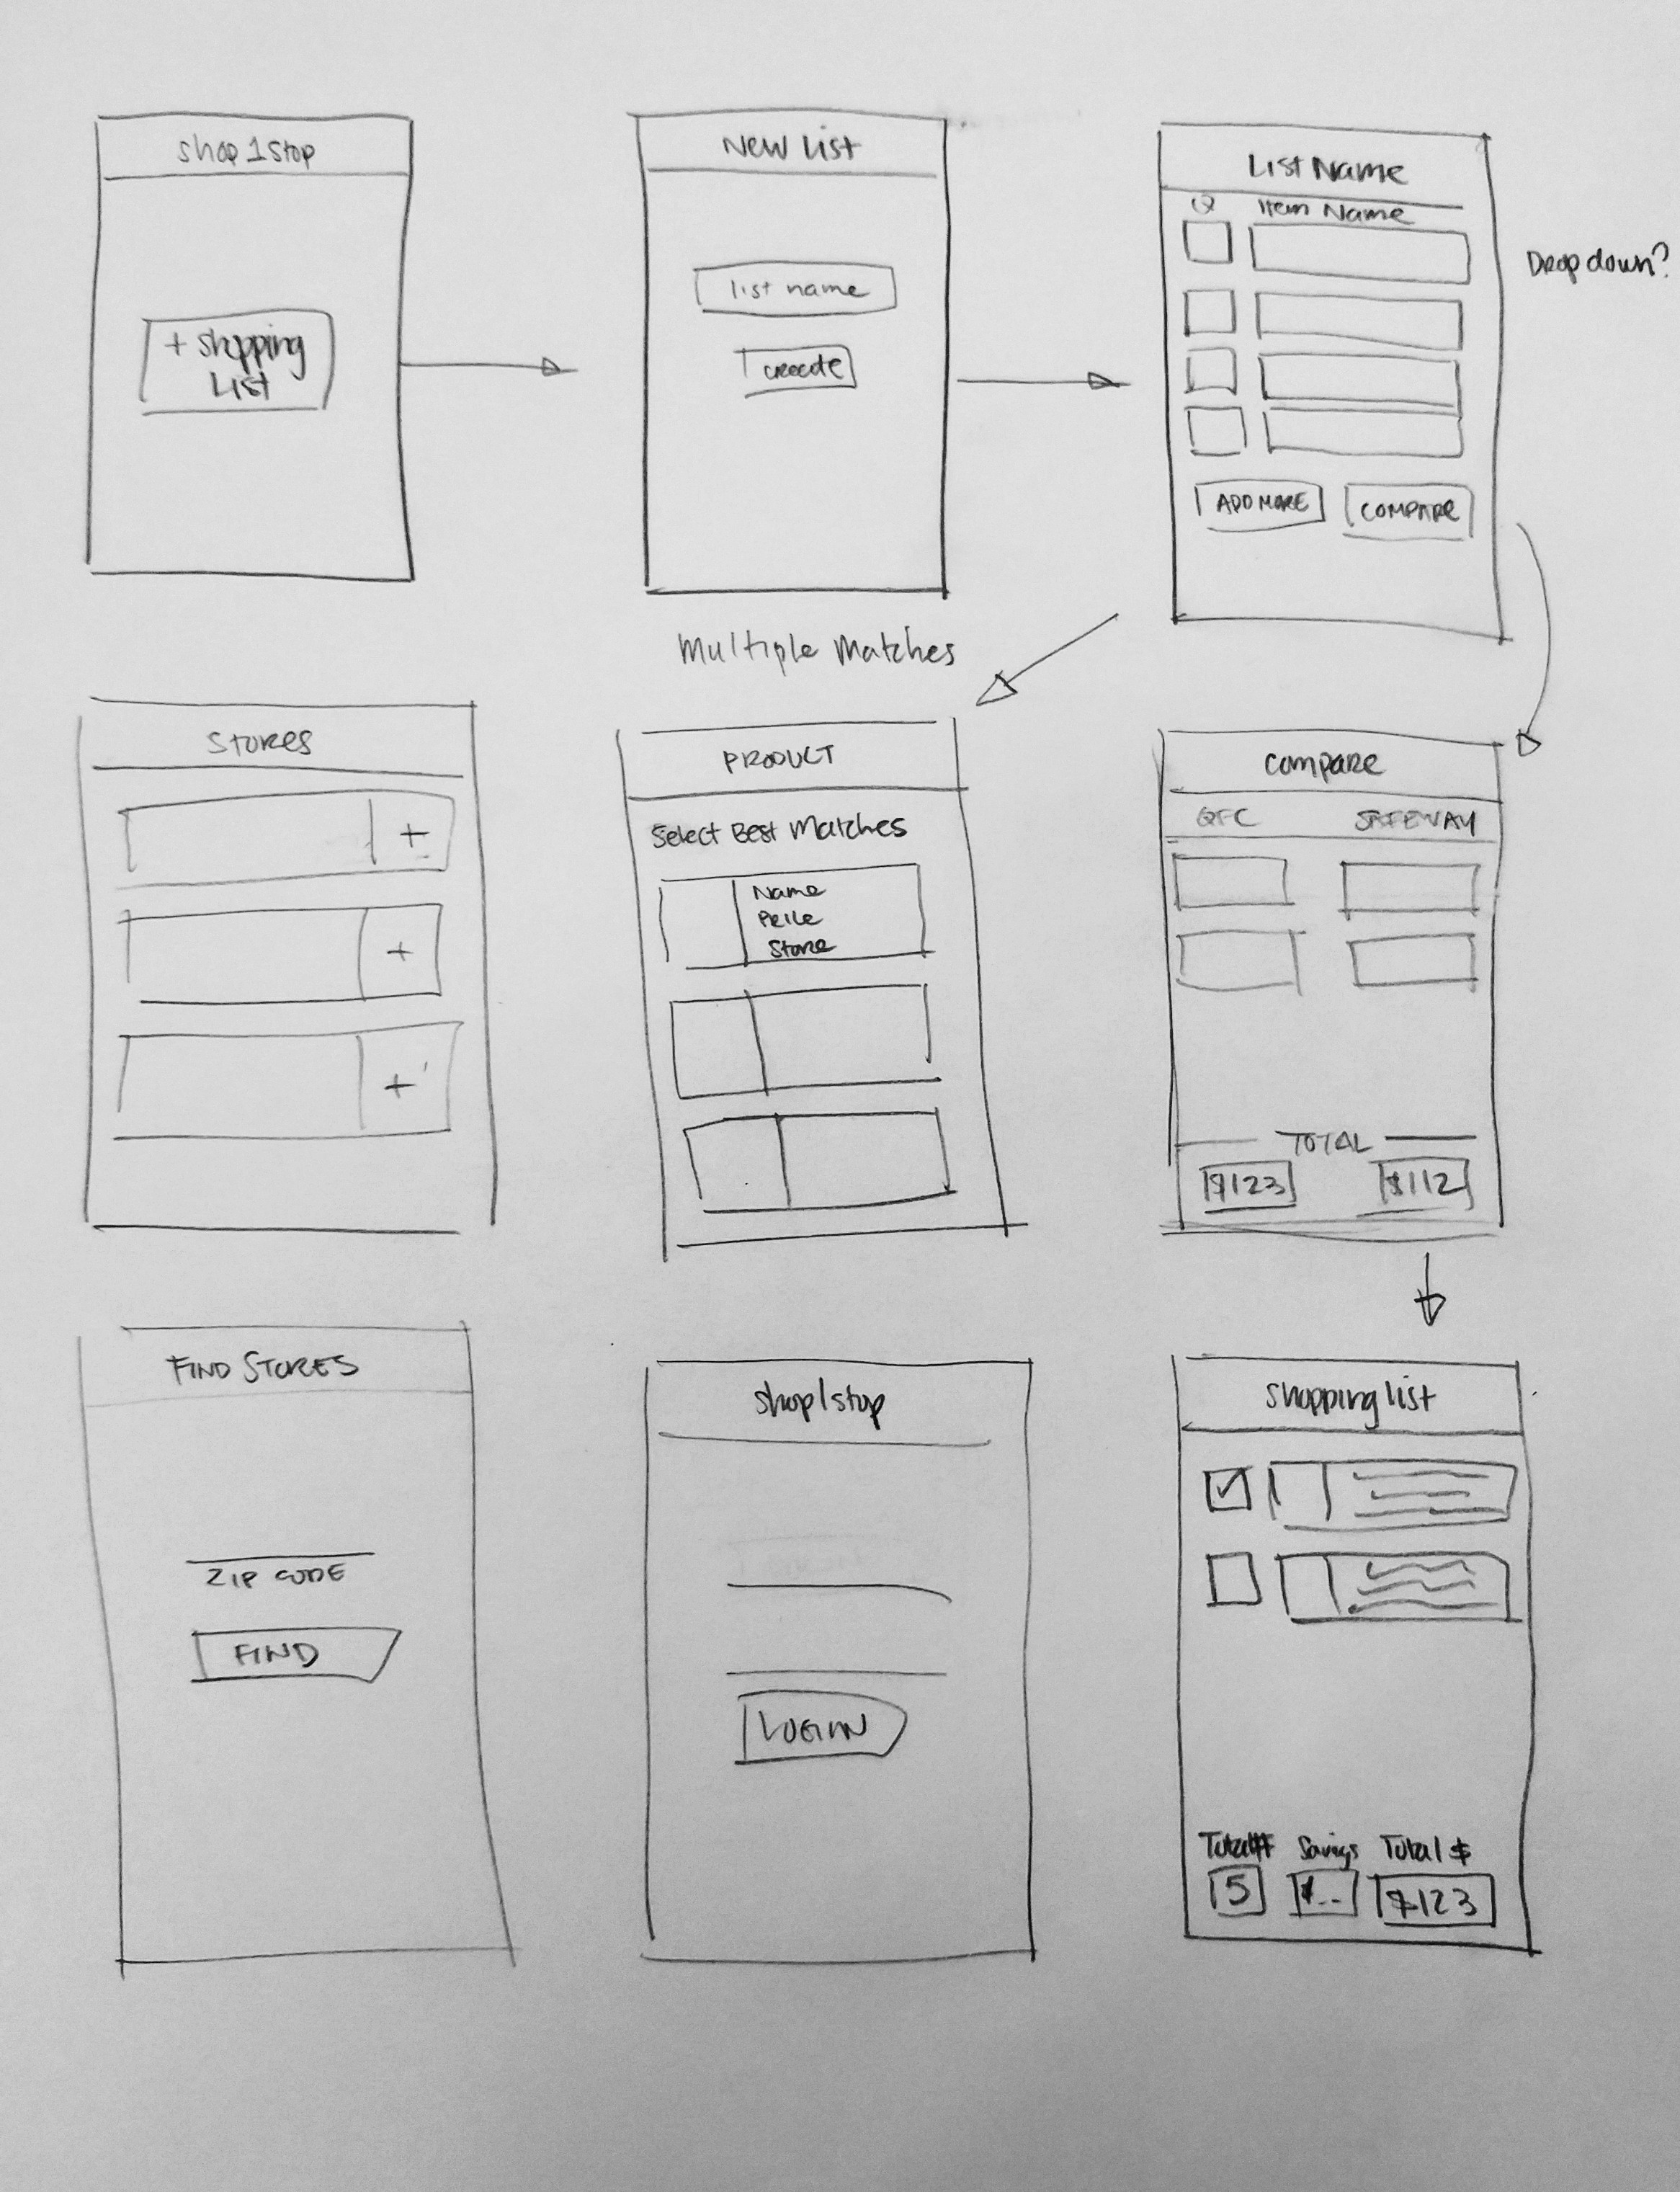 shop 1 stop
+ shopping
List
New List
list name
create
List Name
Q Item Name
Drop down?
ADD MORE COMPARE
Multiple Matches
Stores
+
+
+
PRODUCT
Select Best Matches
Name
Price
Store
Compare
QFC SAFEWAY
TOTAL
$123 $112
FIND STORES
ZIP CODE
FIND
shop1stop
LOGIN
Shopping list
Total# Savings Total $
5 $-- $123